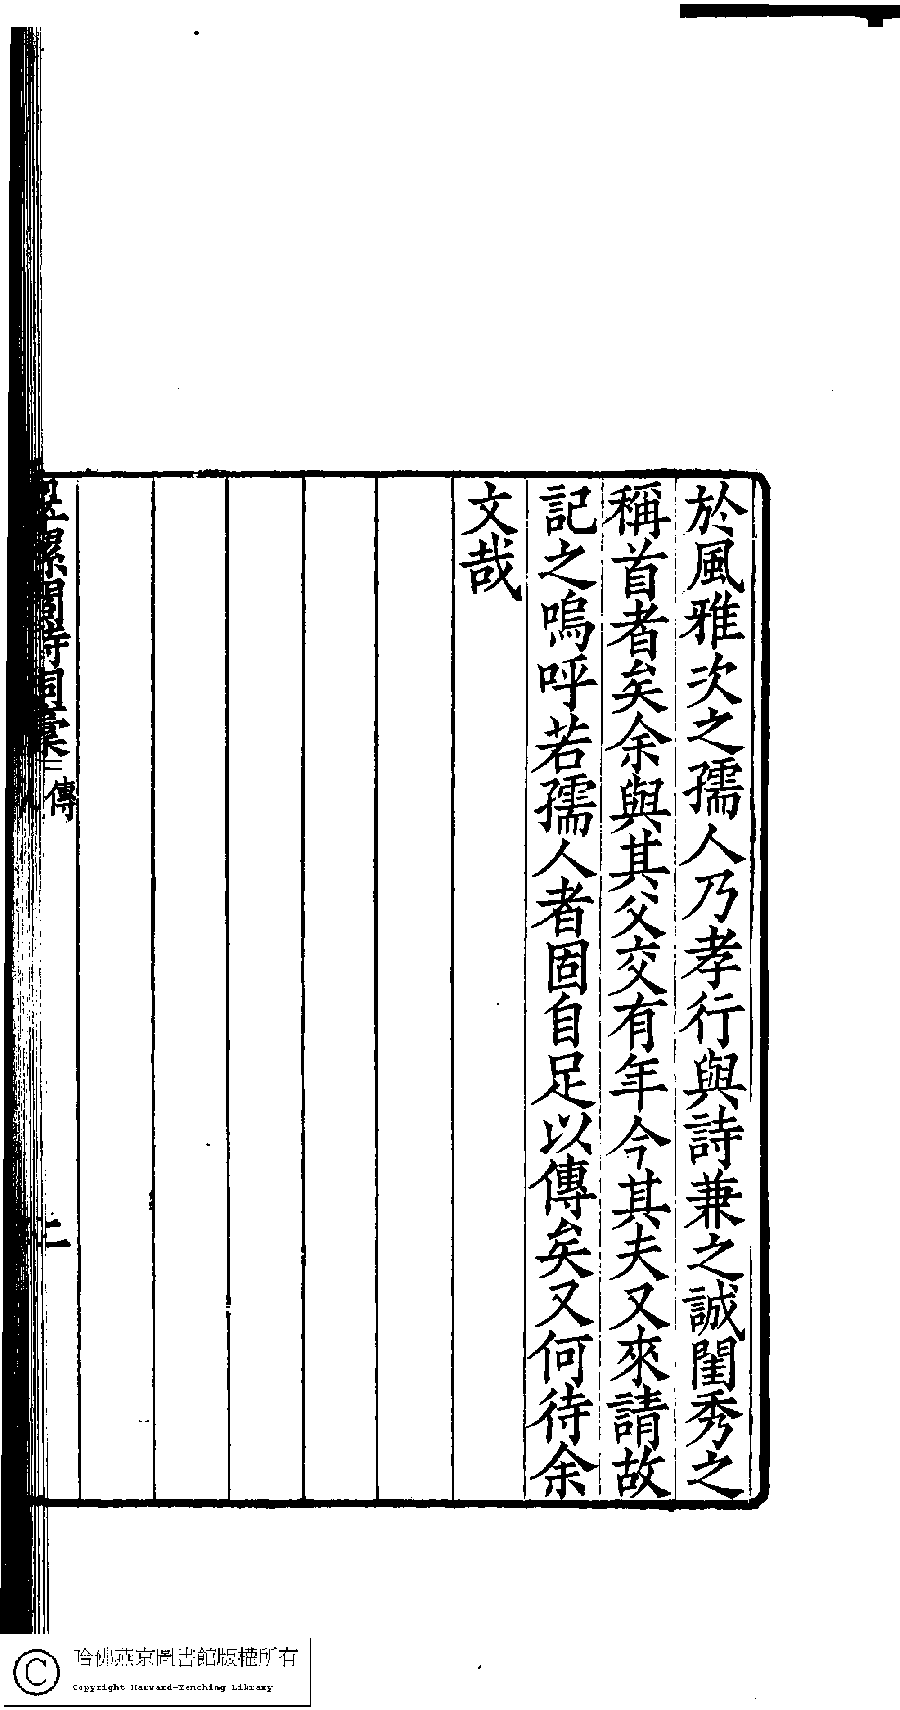 於風雅次之孺人乃孝行與詩兼之誠閨秀之
稱首者矣余與其父交有年今其夫又來請故
記之嗚呼若孺人者固自足以傳矣又何待余
文哉
螺閣詩詞稾 傳
二
哈佛燕京圖書館版權所有
Copyright Harvard-Yenching Library